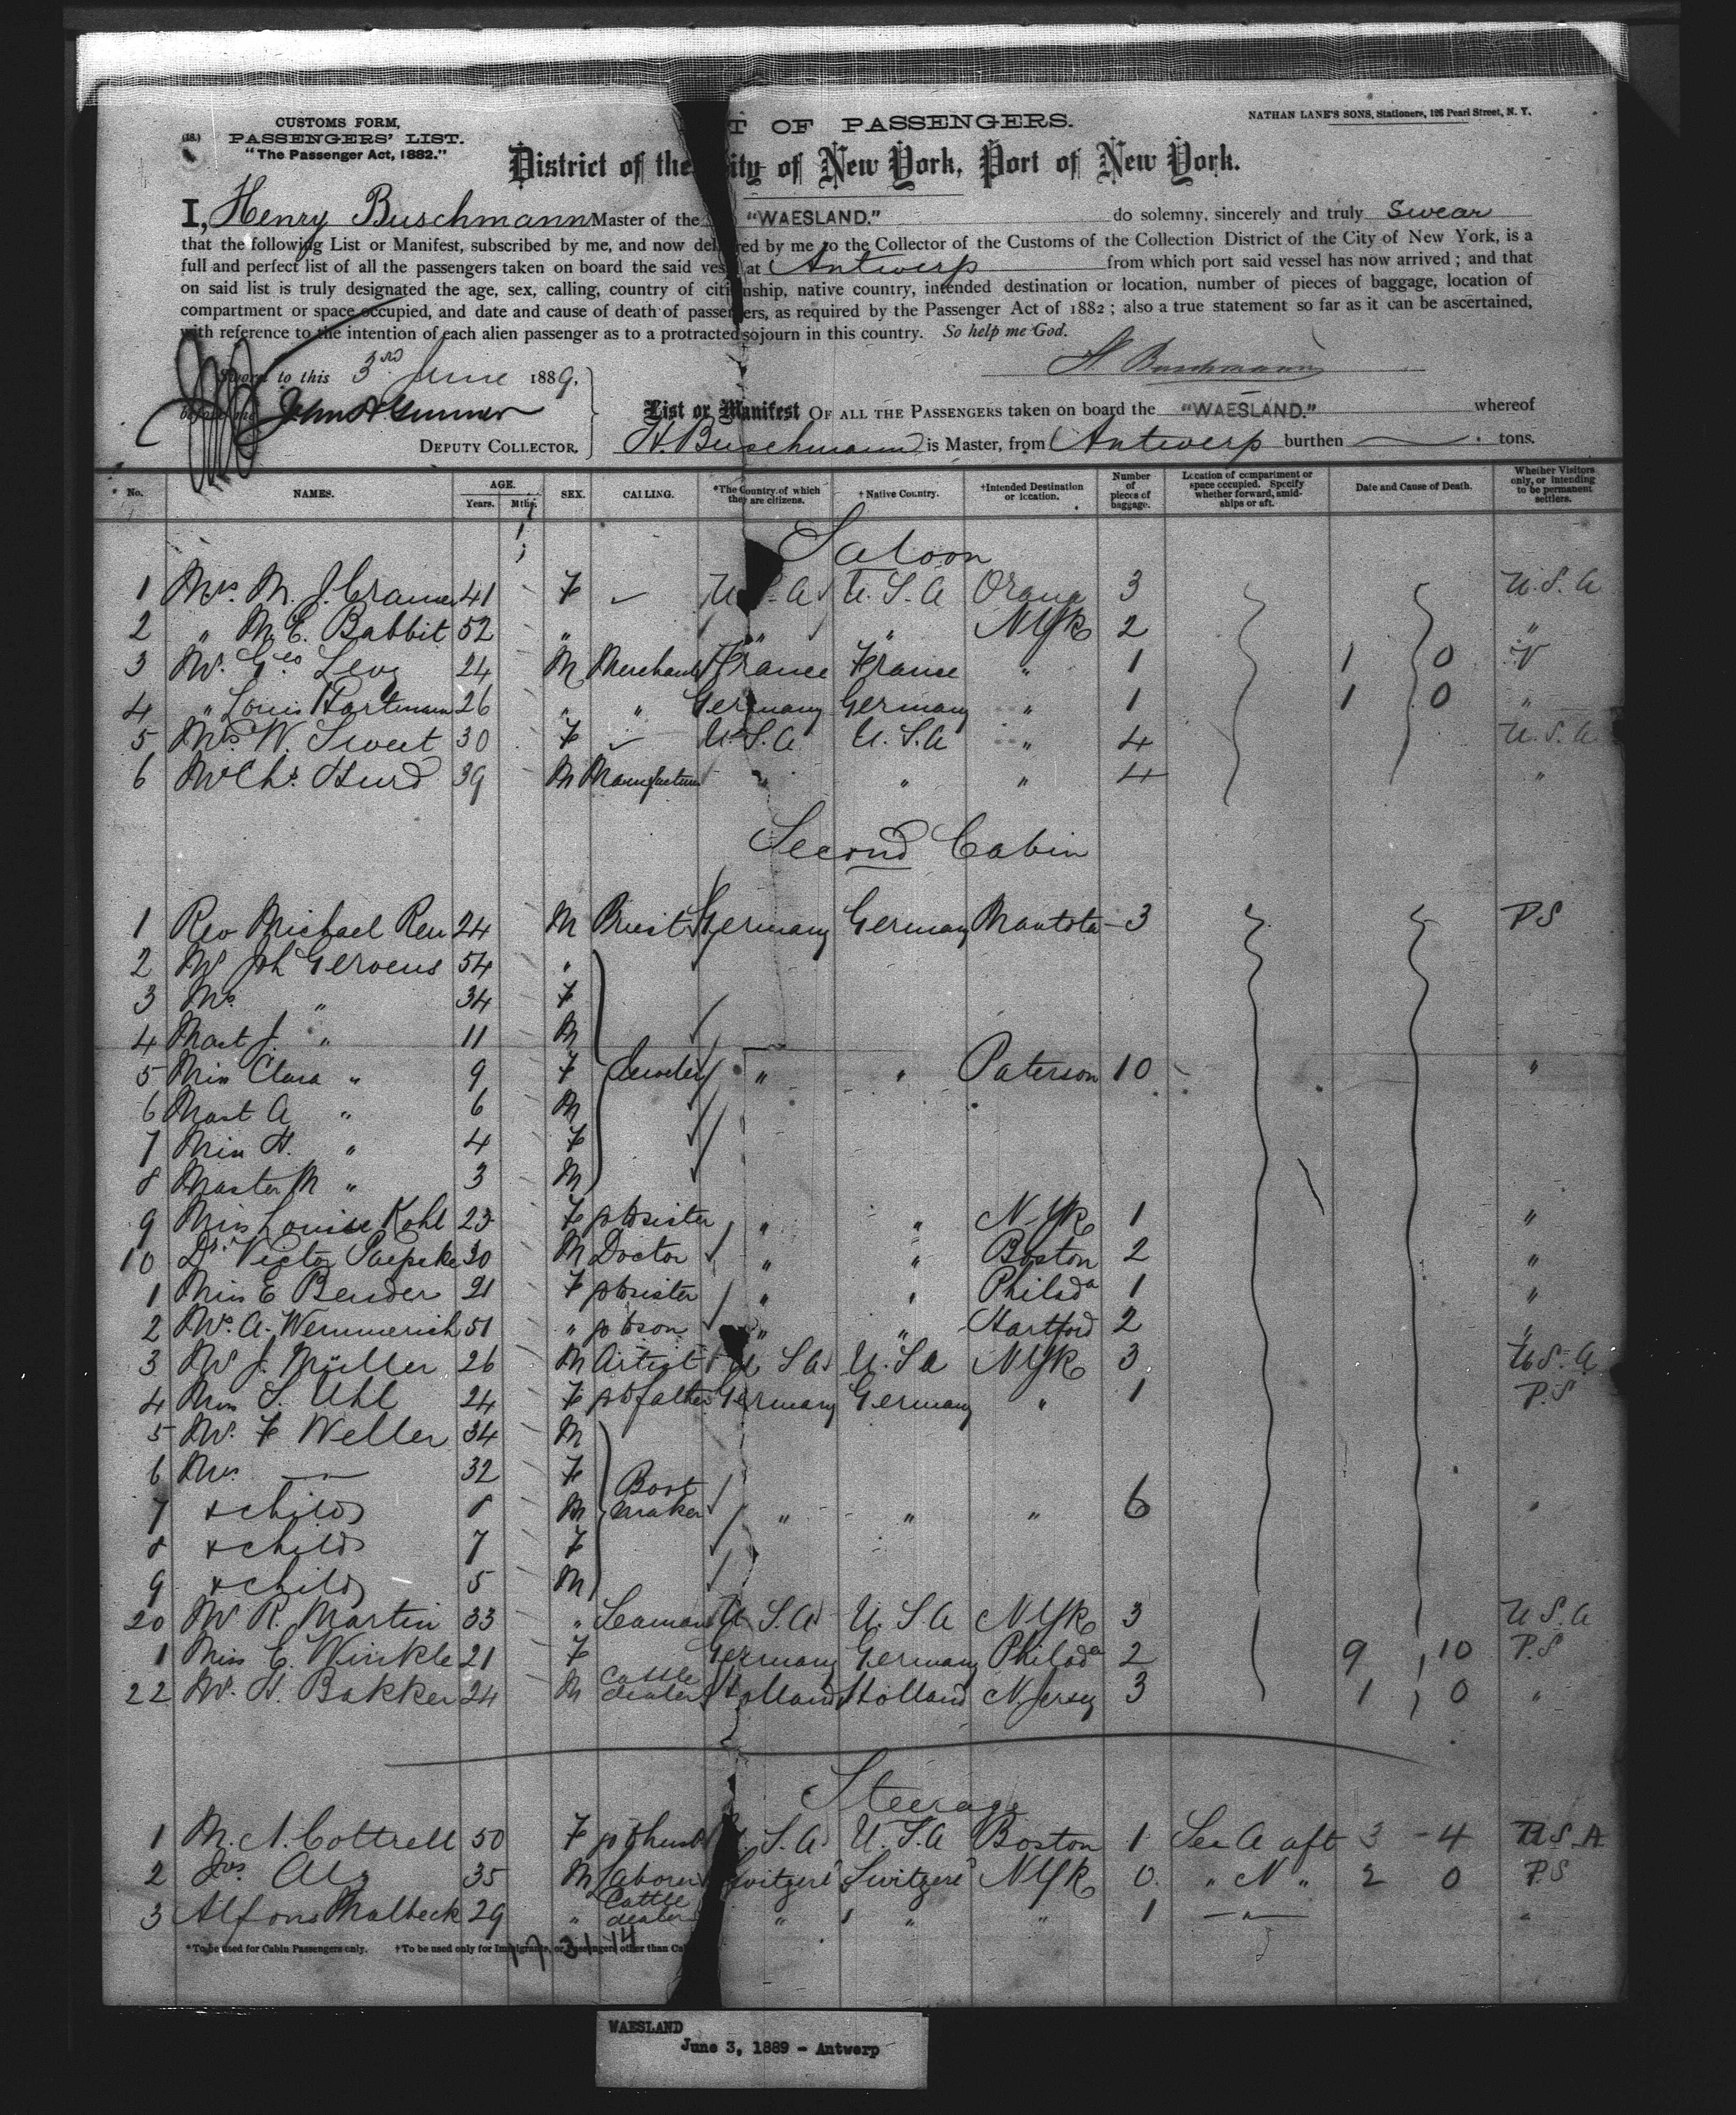 CUSTOMS FORM,
(18.) PASSENGERS' LIST.
"The Passenger Act, 1882."
T OF PASSENGERS.
NATHAN LANE'S SONS, Stationers, 126 Pearl Street, N. Y.
District of the ity of New York, Port of New York.
I, Henry Buschmann Master of the "WAESLAND." do solemny, sincerely and truly swear
that the following List or Manifest, subscribed by me, and now del red by me to the Collector of the Customs of the Collection District of the City of New York, is a
full and perfect list of all the passengers taken on board the said vess at Antwerp from which port said vessel has now arrived; and that
on said list is truly designated the age, sex, calling, country of citi nship, native country, intended destination or location, number of pieces of baggage, location of
compartment or space occupied, and date and cause of death of passen ers, as required by the Passenger Act of 1882; also a true statement so far as it can be ascertained,
with reference to the intention of each alien passenger as to a protracted sojourn in this country. So help me God.
H. Buschmann
Sworn to this 3rd June 1889,
before me
DEPUTY COLLECTOR.
List or Manifest OF ALL THE PASSENGERS taken on board the "WAESLAND." whereof
H. Buschmann is Master, from Antwerp burthen — tons.
No. NAMES. AGE. Years. Mths. SEX. CALLING. *The Country of which they are citizens. †Native Country. †Intended Destination or location. Number of pieces of baggage. Location of compartment or space occupied. Specify whether forward, amidships or aft. Date and Cause of Death. Whether Visitors only, or intending to be permanent settlers.
Saloon
1 Mrs. M. J. Cramer 41 F U.S.A U.S.A Orang 3 U.S.A
2 " M. E. Babbit 52 " " " NYk 2 "
3 Mr. Ges Levy 24 M Merchant France France " 1 1 0
4 " Louis Hartmann 26 " " Germany Germany " 1 1 0 "
5 Mrs W. Sweet 30 F U.S.A U.S.A " 4 U.S.A
6 Mr Chs. Hurd 39 M Manufacturer " " " 4 "
Second Cabin
1 Rev Michael Reu 24 M Priest Germany Germany 3 P.S
2 Mr Joh Gervens 54 "
3 Mrs " 34 F
4 Mast J. " 11 M
5 Miss Clara " 9 F Jeweler " " Paterson 10 "
6 Mast A " 6 M
7 Miss H. " 4 F
8 Master M " 3 M
9 Miss Louise Kohl 23 F sister " " N-Yk 1 "
10 Dr. Victor Paepcke 30 M Doctor " " Boston 2 "
1 Miss E Bender 21 F sister " " Philada 1 "
2 Mrs. A. Wemmerich 51 " son " " Hartford 2 "
3 Mr J. Müller 26 M Artist U S A U.S.A NYk 3 U.S.A
4 Miss S. Uhl 24 F father Germany Germany " 1 P.S
5 Mr. F Weller 34 M
6 Mrs — 32 F
7 + child 8 M Boot maker " " " 6 "
8 + child 7 F
9 + child 5 M
20 Mr R. Martin 33 " Seaman U.S.A U.S.A NYk 3 U.S.A
1 Miss E. Winkle 21 F Germany Germany Philada 2 9 10 P.S
22 Mr. H. Bakker 24 M Cattle dealer Holland Holland N.Jersey 3 1 0 "
Steerage
1 M. A. Cottrell 50 F S.A U.S.A Boston 1 Sec A aft 3 - 4 U.S.A
2 35 M Laborer witzerl Switzerl NYk 0. " N " 2 0 P.S
3 Alfons Malbeck 29 " Cattle dealer " " " 1 — " — "
*To be used for Cabin Passengers only. †To be used only for Immigrants, or Passengers other than Ca
17 31 14
WAESLAND
June 3, 1889 - Antwerp